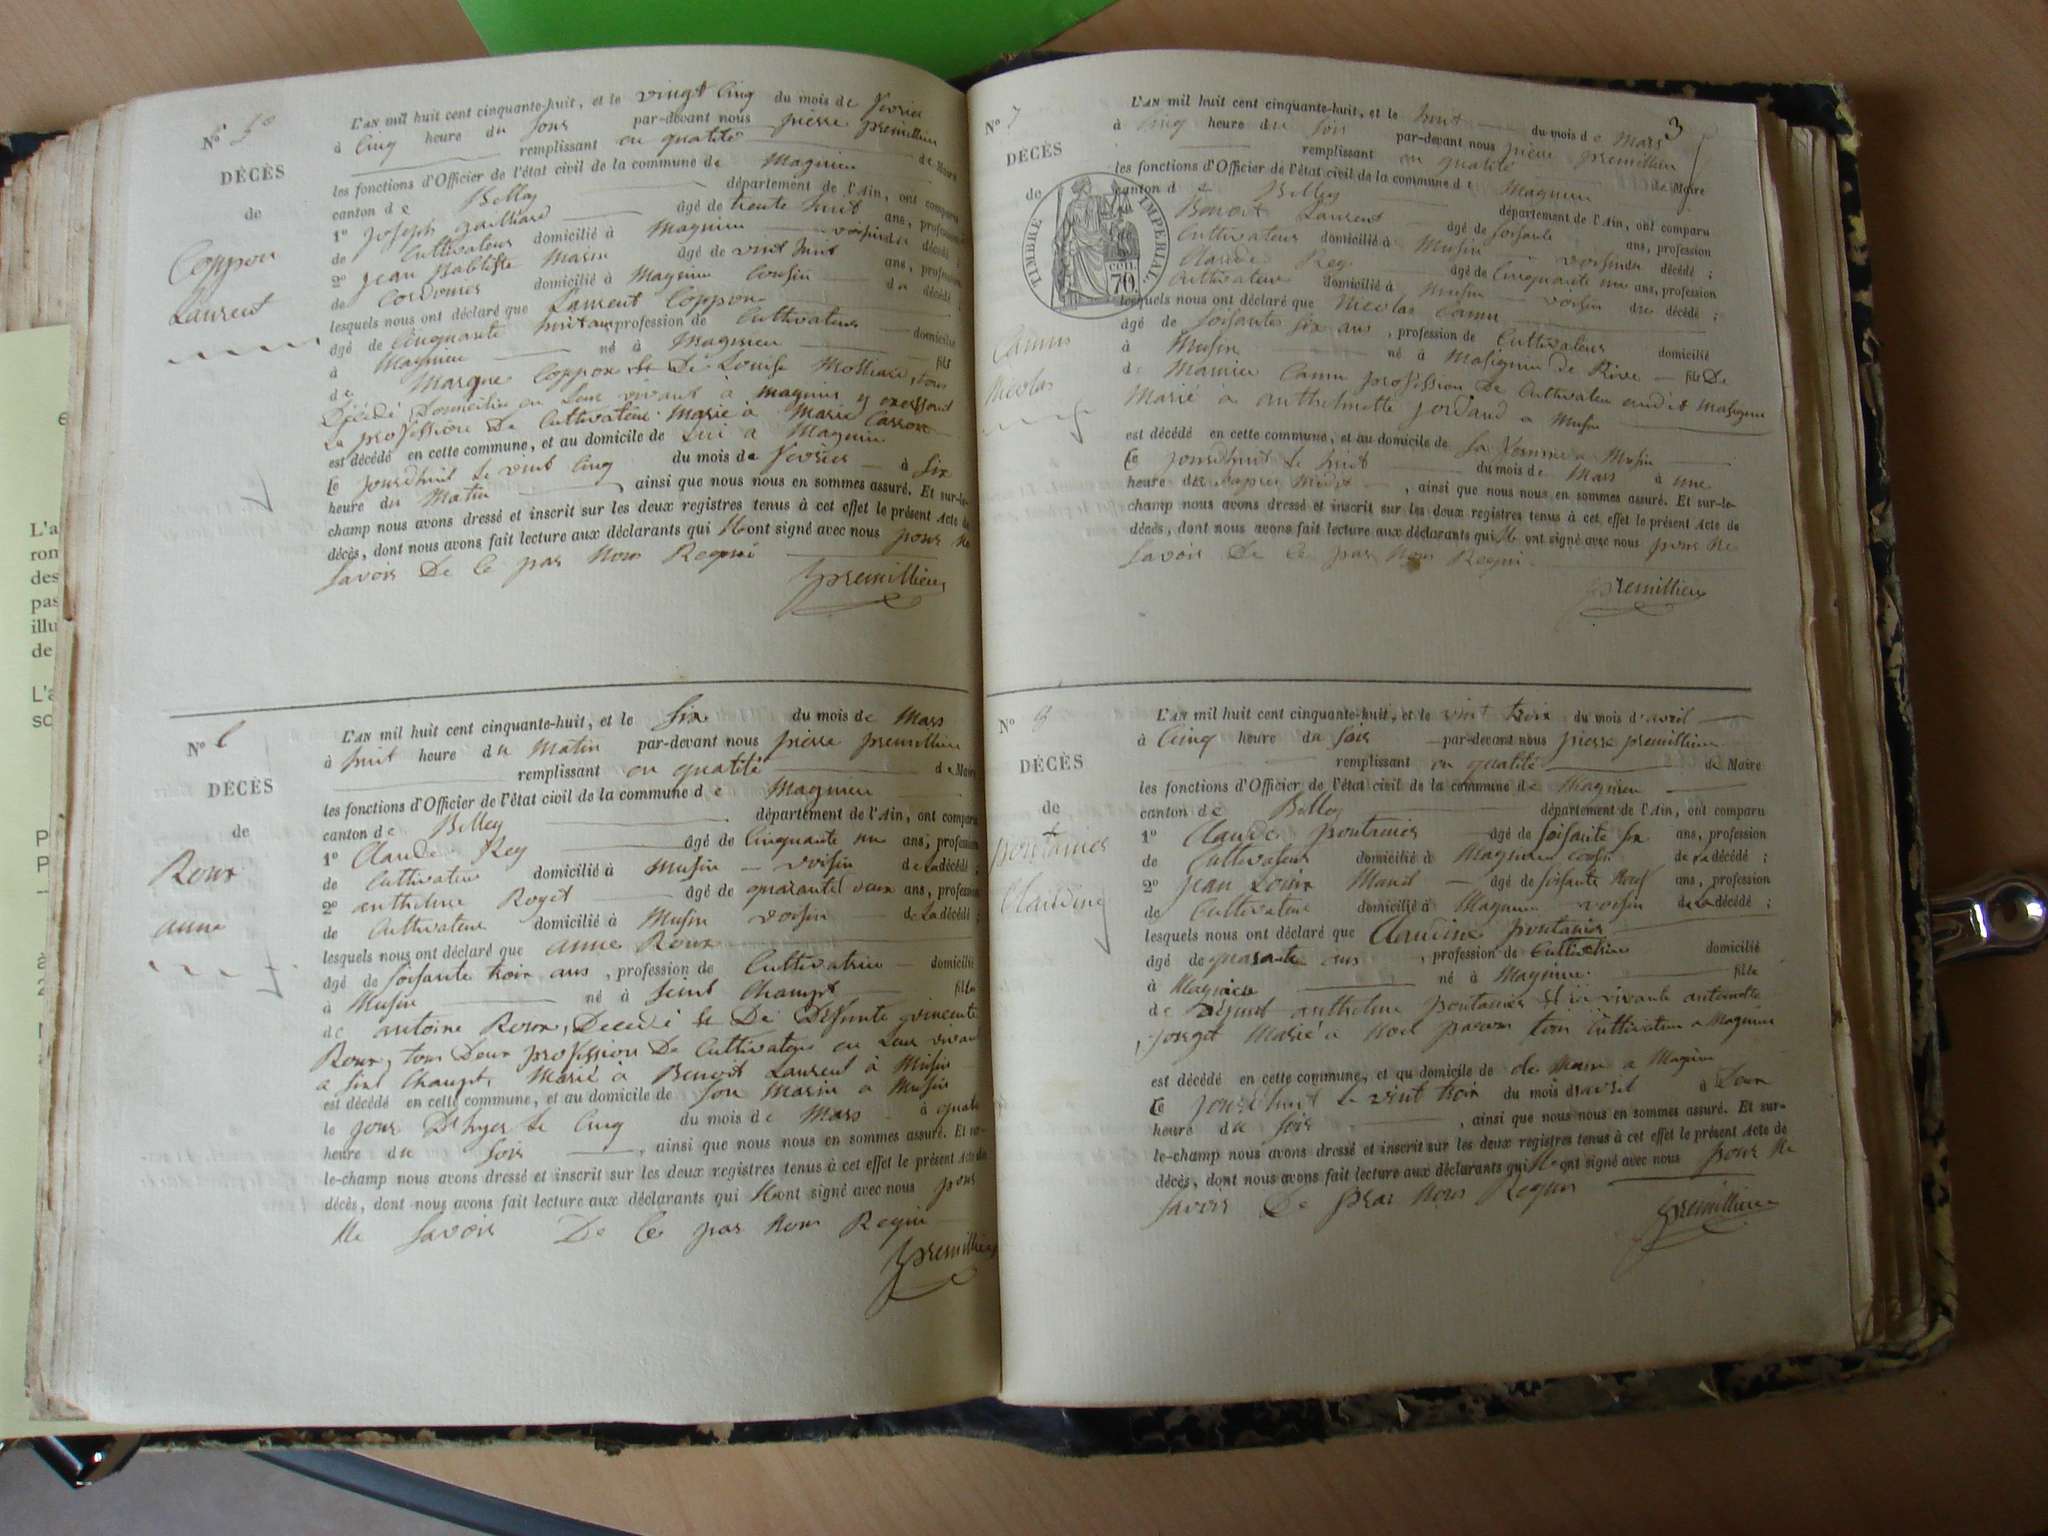 N° 5
DÉCÈS
de
Coppon
Laurent
L'an mil huit cent cinquante-huit, et le vingt cinq du mois de fevrier
à cinq heure du soir par-devant nous pierre premillieu
remplissant en qualité de Maire
les fonctions d'Officier de l'état civil de la commune de Magnieu
canton de Belley département de l'Ain, ont comparu
1° joseph âgé de trente huit ans, profession
de Cultivateur domicilié à Magnieu voisin du décédé ;
2° jean Babtiste Marin âgé de vint huit ans, profession
de Cordonnier domicilié à Magnieu Cousin du décédé ;
lesquels nous ont déclaré que Laurent Coppon
âgé de Cinquante huit ans, profession de Cultivateur domicilié
à Magnieu né à Magnieu fils
de Marque Coppon et De Louise Molliard, tous
Décédé Domicilié en Leur vivant à magnieu y exersant
La profession De Cultivateur. Marié à Marie Carron
est décédé en cette commune, et au domicile de Lui a Magnieu
Le jourdhuit Le vint Cinq du mois de fevrier à Six
heure du Matin, ainsi que nous nous en sommes assuré. Et sur-le-
champ nous avons dressé et inscrit sur les deux registres tenus à cet effet le présent Acte de
décès, dont nous avons fait lecture aux déclarants qui Ne ont signé avec nous pour Ne
Savoir De Ce par Nous Requi
premillieu
N° 6
DÉCÈS
de
Roux
anne
L'an mil huit cent cinquante-huit, et le Six du mois de Mars
à huit heure du Matin par-devant nous pierre premillieu
remplissant en qualité de Maire
les fonctions d'Officier de l'état civil de la commune de Magnieu
canton de Belley département de l'Ain, ont comparu
1° Claude Rey âgé de Cinquante un ans, profession
de Cultivateur domicilié à Musin voisin de La décédé ;
2° anthelme Royet âgé de quarante deux ans, profession
de Cultivateur domicilié à Musin voisin de La décédé ;
lesquels nous ont déclaré que anne Roux
âgé de Soisante trois ans, profession de Cultivatrice domicilié
à Musin né à Seint Champt fille
de antoine Roux, Décédé Et De Défunte
Roux, tous Deux profession De Cultivateur en Leur vivant
a Sint Champt, Marié à Benoit Laurent à Musin
est décédé en cette commune, et au domicile de Son Marin a Musin
le jour D'hyer Le Cinq du mois de Mars à quatre
heure du Soir, ainsi que nous nous en sommes assuré. Et sur-
le-champ nous avons dressé et inscrit sur les deux registres tenus à cet effet le présent Acte de
décès, dont nous avons fait lecture aux déclarants qui Ne ont signé avec nous pour
Ne Savoir De Ce par Nous Requi
premillieu
3
N° 7
DÉCÈS
de
TIMBRE IMPERIAL
70
Camus
Nicolas
L'an mil huit cent cinquante-huit, et le huit du mois de Mars
à Cinq heure du Soir par-devant nous pierre premillieu
remplissant en qualité de Maire
les fonctions d'Officier de l'état civil de la commune de Magnieu
canton d Belley département de l'Ain, ont comparu
Benoit Laurent âgé de Soisante ans, profession
Cultivateur domicilié à Musin voisin du décédé ;
Claude Rey âgé de Cinquante un ans, profession
Cultivateur domicilié à Musin voisin du décédé ;
lesquels nous ont déclaré que Nicolas Camu
âgé de Soisante six ans, profession de Cultivateur domicilié
à Musin né à Masignieu de Rive fils De
de Camu profession De Cultivateur
Marié à anthelmette jordand a Musin
est décédé en cette commune, et au domicile de Sa femme a Musin
Le jourdhuit Le huit du mois de Mars à une
heure de Lapres Midit, ainsi que nous nous en sommes assuré. Et sur-le-
champ nous avons dressé et inscrit sur les deux registres tenus à cet effet le présent Acte de
décès, dont nous avons fait lecture aux déclarants qui Ne ont signé avec nous pour Ne
Savoir De Ce par Nous Requi
premillieu
N°
DÉCÈS
de
pontanier
Claudine
L'an mil huit cent cinquante-huit, et le vint trois du mois d'avril
à Cinq heure du Soir par-devant nous pierre premillieu
remplissant en qualité de Maire
les fonctions d'Officier de l'état civil de la commune de Magnieu
canton de Belley département de l'Ain, ont comparu
1° Claude pontanier âgé de Soisante six ans, profession
de Cultivateur domicilié à Magnieu cousin de La décédé ;
2° jean Louis âgé de Soisante Neuf ans, profession
de Cultivateur domicilié à Magnieu voisin de La décédé ;
lesquels nous ont déclaré que Claudine pontanier
âgé de quarante ans, profession de Cultivatrice domicilié
à Magnieu né à Magnieu fille
de Défunt anthelme pontanier Et
Marié à Noel tous Cultivateur a Magnieu
est décédé en cette commune, et au domicile de a Magnieu
Le jourdhuit Le vint trois du mois d'avril à Deux
heure du Soir, ainsi que nous nous en sommes assuré. Et sur-
le-champ nous avons dressé et inscrit sur les deux registres tenus à cet effet le présent Acte de
décès, dont nous avons fait lecture aux déclarants qui Ne ont signé avec nous pour Ne
Savoir De par Nous Requi
premillieu